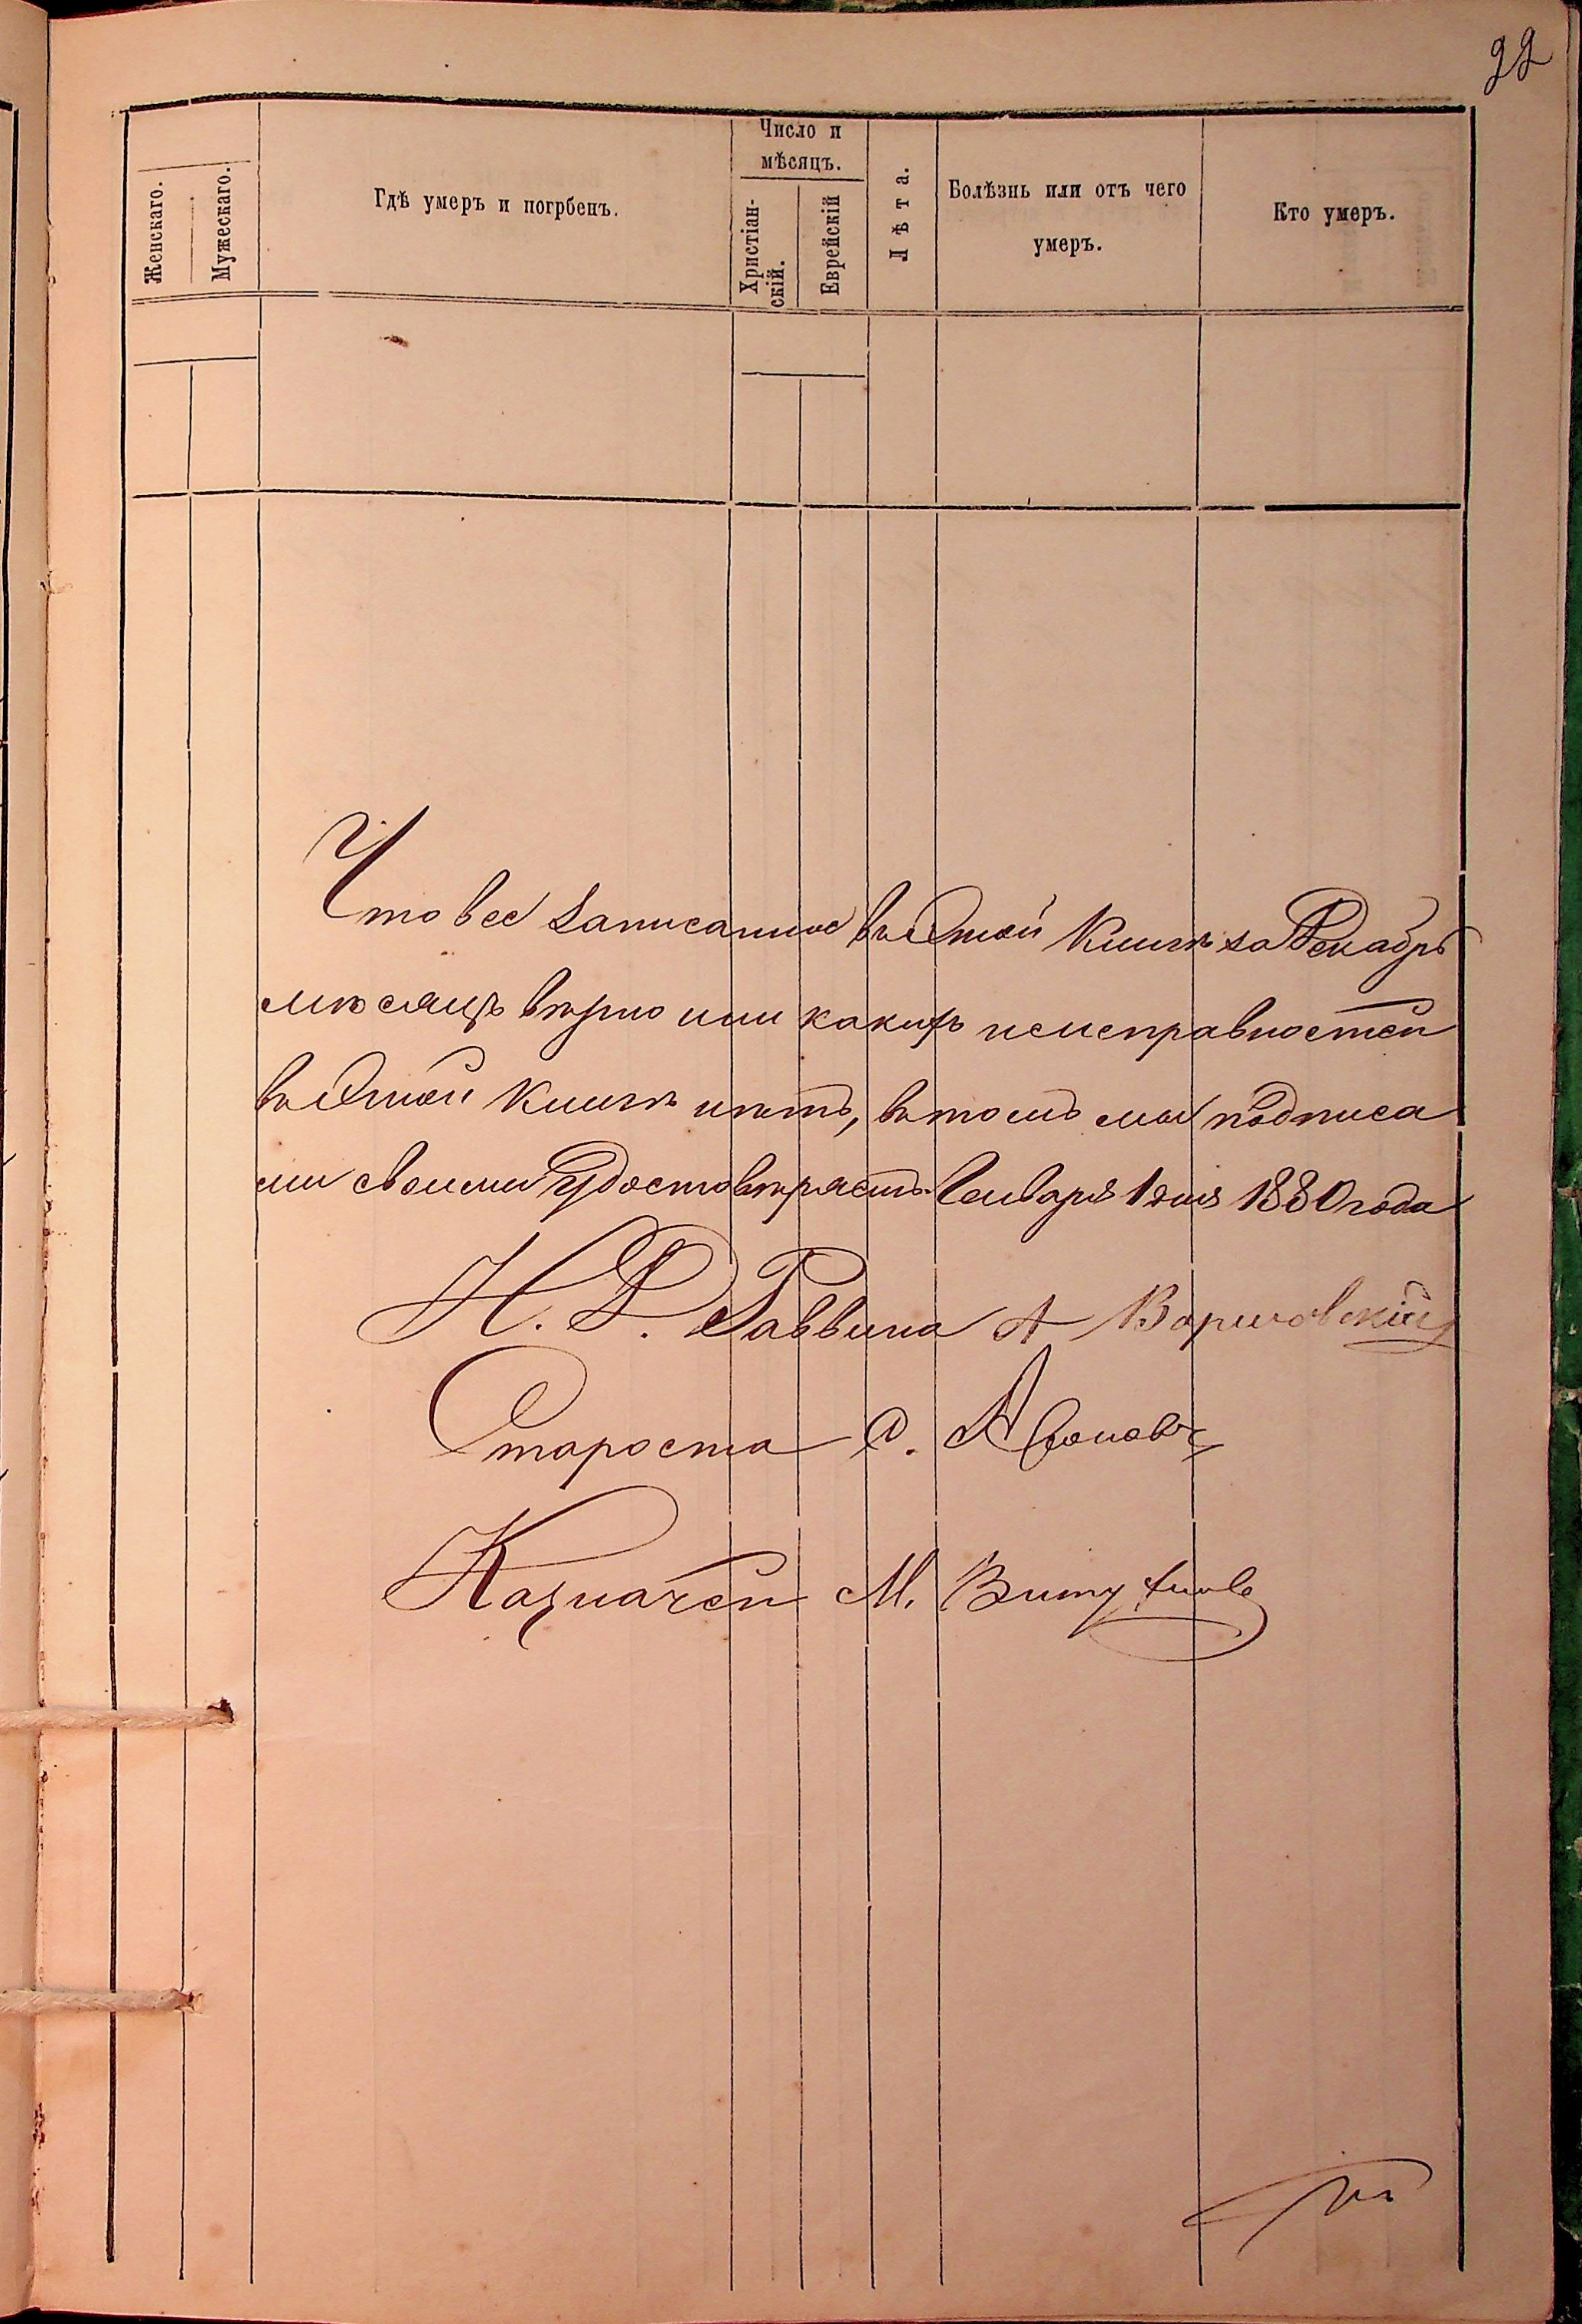 22
Женскаго.
Мужескаго.
Гдѣ умеръ и погрбенъ.
Число и
мѣсяцъ.
Христіан-
скій.
Еврейскій
Лѣта.
Болѣзнь или отъ чего
умеръ.
Кто умеръ.
Что все записанное въ этой Книгѣ за Декабрь
мѣсяцъ вѣрно и ни какихъ неисправностей
въ этой Книгѣ нѣтъ, въ томъ мы подписа
ми своими удостовѣряемъ. Января 1 дня 1880 года
И. Д. Раввина А Варшовскій
Староста
Казначей М.